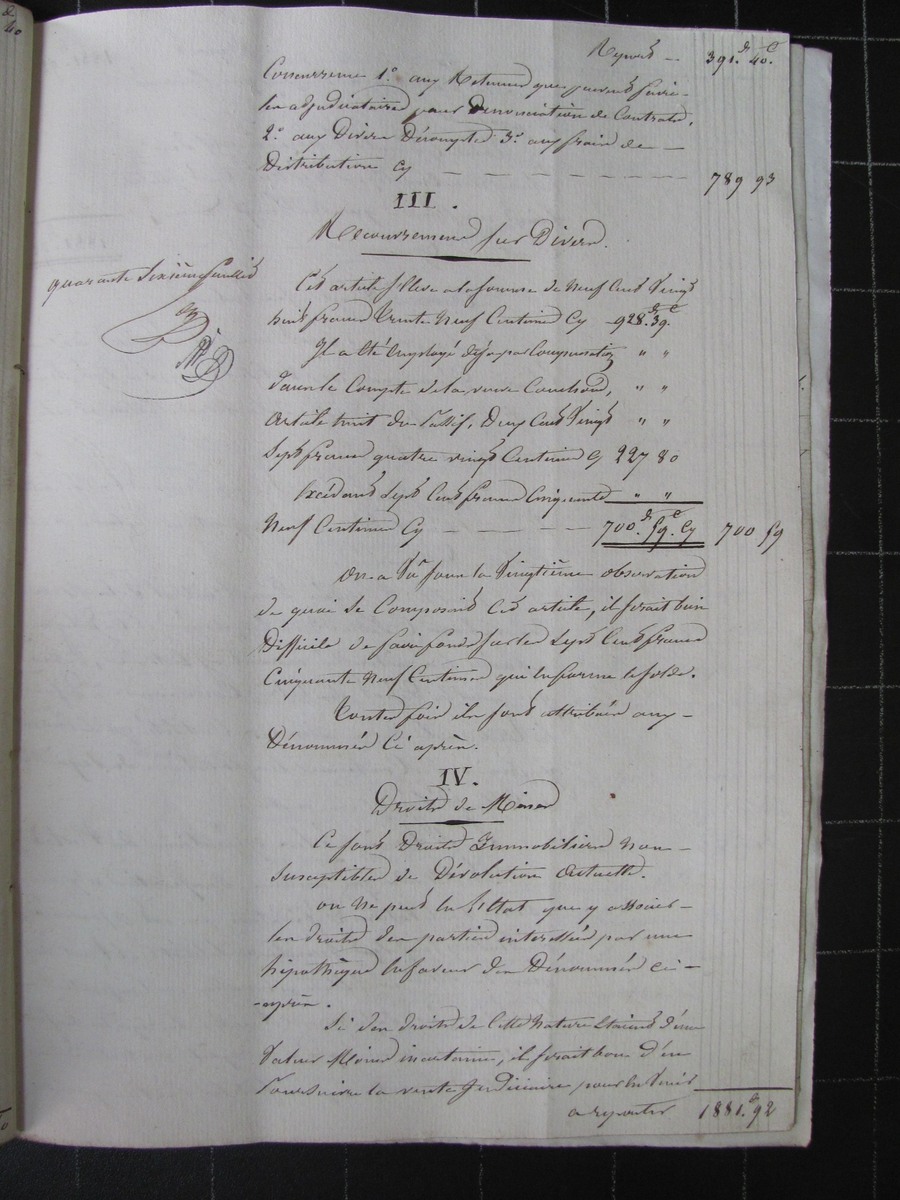 Report -- 391.fr 40.c
Concurrence 1.o aux Retenues que peuvent faire
les adjudicataires pour Dénonciation de Contrats,
2.o aux Divers Décomptes 3.o aux frais de —
Distribution Cy — — — — — — — 789 93
III.
Recouvrements sur Divers.
quarante sixième feuillet
Cet article s'élève à la somme de Neuf Cent Vingt
huit francs trente Neuf Centimes Cy 928.fr 39.c
Il a été Employé déja par Compensation " "
dans le Compte de la veuve " "
article huit du Passif, Deux Cent Vingt " "
Sept francs quatre vingt Centimes Cy 227 80
Excédant Sept Cent francs Cinquante " "
Neuf Centimes Cy — — — — 700.fr 59.c Cy 700 59
On a Vu sous la Vingtième observation
de quoi se Composait Cet article, il serait bien
Difficile de faire fonds sur les Sept Cent francs
Cinquante Neuf Centimes qui en forme le solde.
Toutes fois ils sont attribués aux —
Dénommés Ci après.
IV.
Droits de Mines
Ce sont Droits Immobiliers Non —
Susceptibles de Dévolution Actuelle.
on ne peut en l'Etat que y asseoir —
les droits des parties intéressées par une
hipothèque en faveur des Dénommés ci —
- après.
Si des droits de Cette Nature Etaient d'une
Valeur Moins incertaine, il serait bon d'en
Poursuivre la vente Judiciaire pour en
a reporter 1881.fr 92